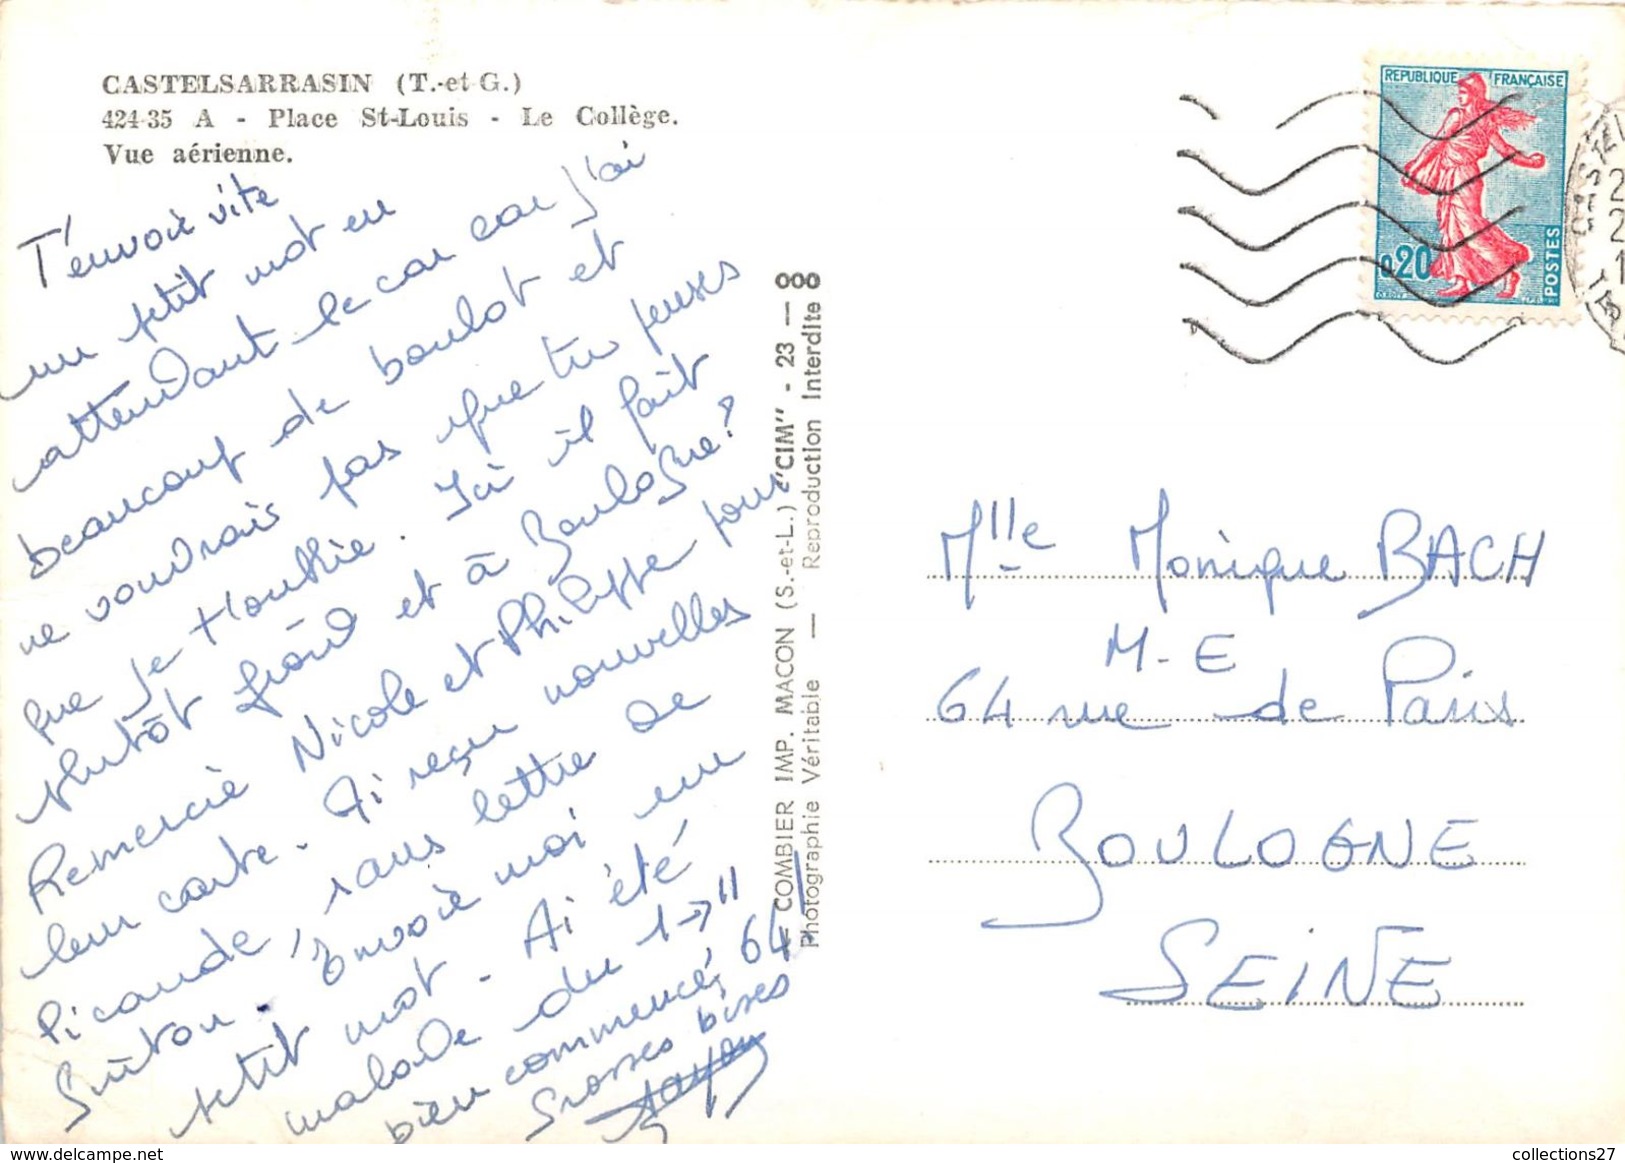 CASTELSARRASIN (T.-et-G.)
424-35 A - Place St-Louis - Le Collège.
Vue aérienne.
T'envoie vite
un petit mot en
attendant le car car j'ai
beaucoup de boulot et
ne voudrais pas que tu penses
que je t'oublie. Ici il fait
plutôt froid et à Boulogne?
Remercie Nicole et Philippe pour
leur carte. Ai reçu nouvelles
Picaude, sans lettre de
Envoie moi un
petit mot. Ai été
malade du 1 → 11
bien commencé, 64!
Grosses bises
COMBIER IMP. MACON (S.-et-L.) "CIM" - 23 — 000
Photographie Véritable — Reproduction Interdite
REPUBLIQUE FRANÇAISE
0,20
POSTES
Mlle Monique BACH
M-E
64 rue de Paris
BOULOGNE
SEINE
delcampe.net
collections27